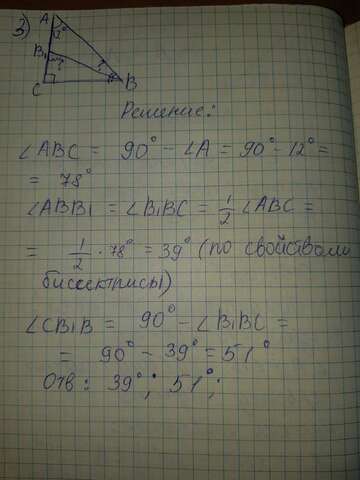 3)
A
12°
B₁
?
?
C
B
Решение:
∠ABC = 90° - ∠A = 90° - 12° =
= 78°
∠ABB₁ = ∠B₁BC = 1/2 ∠ABC =
= 1/2 · 78° = 39° (по свойствам
биссектрисы)
∠CB₁B = 90° - ∠B₁BC =
= 90° - 39° = 51°
Отв: 39°; 51°;